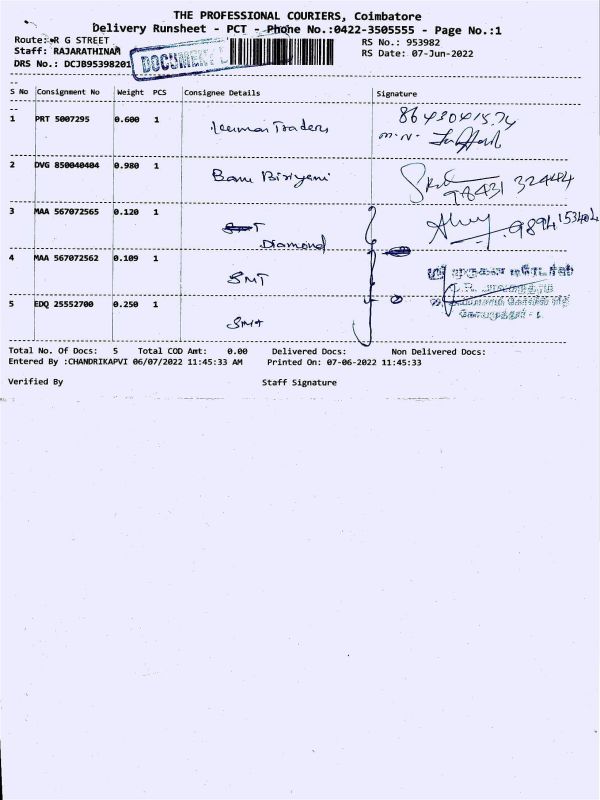 THE PROFESSIONAL COURIERS, Coimbatore
Delivery Runsheet - PCT - Phone No.:0422-3505555 - Page No.:1
Route: R G STREET
RS No.: 953982
Staff: RAJARATHINAM
RS Date: 07-Jun-2022
DRS No.: DCJB95398201
DOCUMENT
S No Consignment No Weight PCS Consignee Details Signature
1 PRT 5007295 0.600 1 Traders
2 DVG 850040404 0.980 1 Banu Biriyani
98431 324484
3 MAA 567072565 0.120 1
Diamond
4 MAA 567072562 0.109 1 SMT
5 EDQ 25552700 0.250 1
Total No. Of Docs: 5 Total COD Amt: 0.00 Delivered Docs: Non Delivered Docs:
Entered By :CHANDRIKAPVI 06/07/2022 11:45:33 AM Printed On: 07-06-2022 11:45:33
Verified By Staff Signature